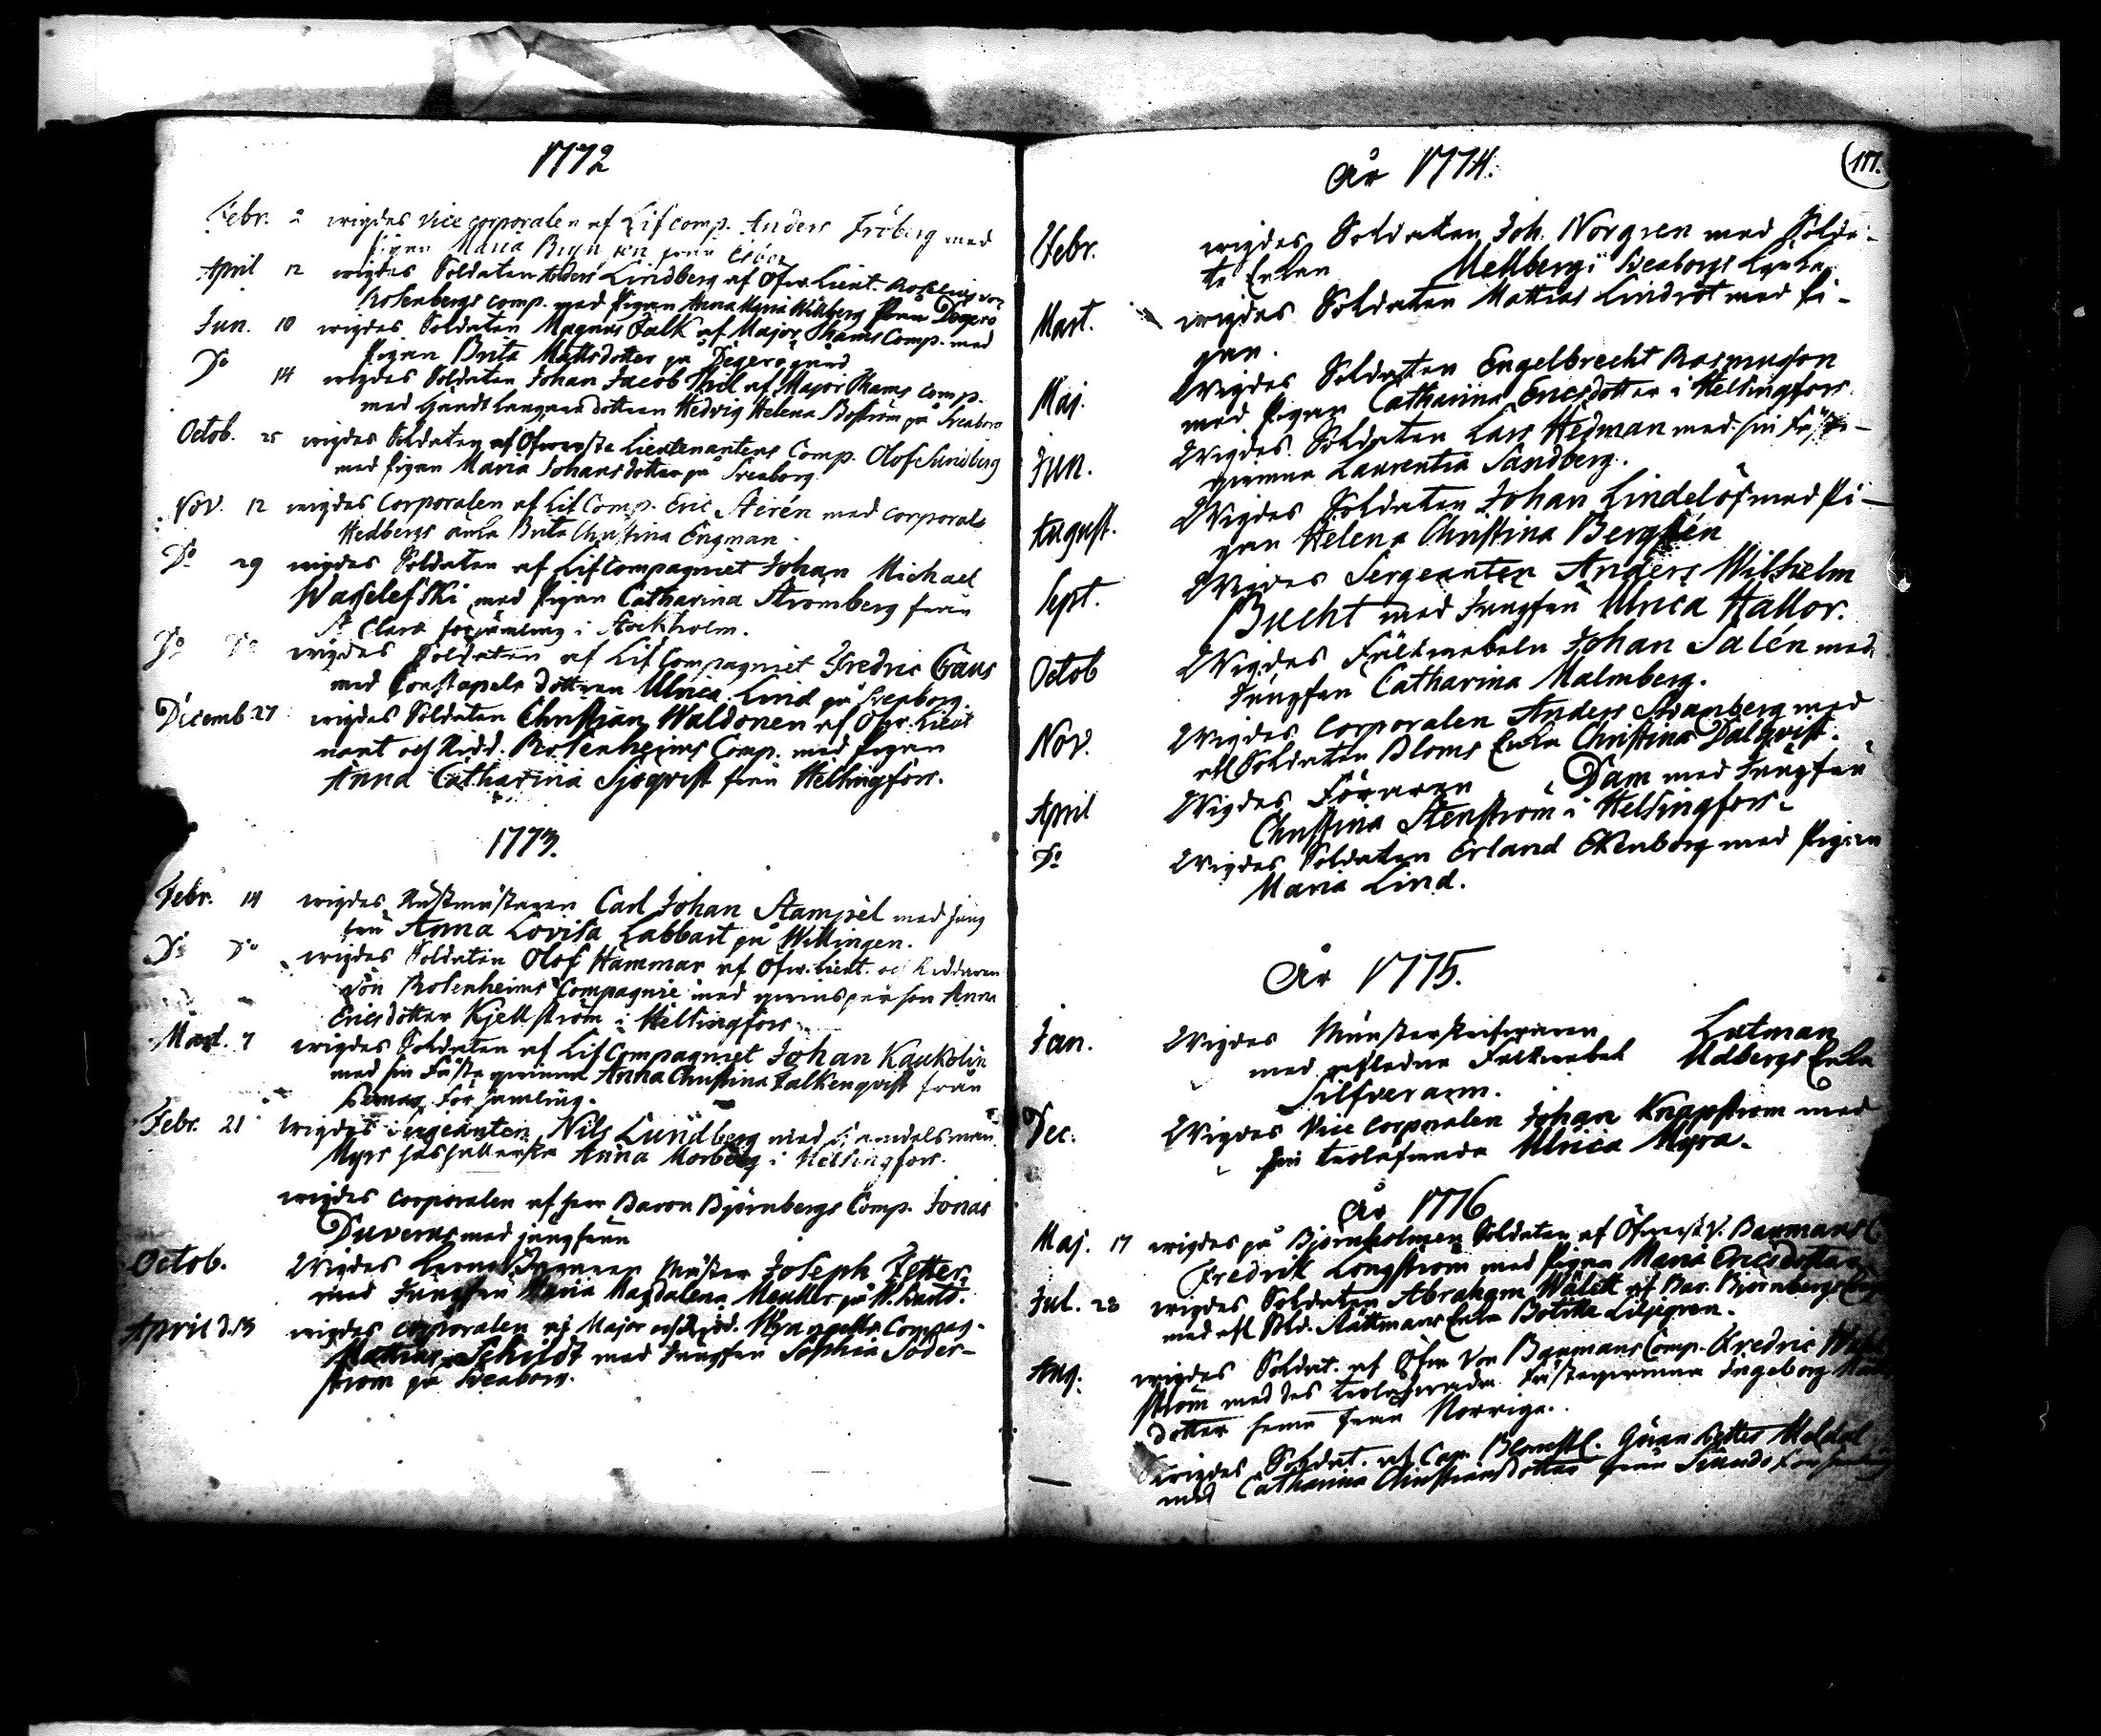 1772
Febr. 2 wigdes vice corporalen af Lifcomp. Anders Fröberg med
pigan Maria från
April 12 wigdes Soldaten Anders Lindberg af Ofw. Lieut.
Rosenbergs comp. med pigan Anna Maria Wikberg från Degerö
Jun. 10 wigdes Soldaten Magnus Falk af Major Thams Comp. med
pigan Brita Mattsdotter på Degerö gård
Do 14 wigdes Soldaten Johan Jacob Thil af Major Thams Comp.
med Handtlangare dottren Hedvig Helena Boström på Sveaborg
Octob. 25 wigdes Soldaten af Ofwerste Lieutenantens Comp. Olof Sundberg
med pigan Maria Johansdotter på Sveaborg
Nov. 12 wigdes Corporalen af Lif Comp. Eric Sterén med corporals
Hedbergs änka Brita Christina Engman.
Do 29 wigdes Soldaten af Lifcompagniet Johan Michael
Wasselefski med pigan Catharina Stromberg från
St Claræ församling i Stockholm.
Do Do wigdes Soldaten af Lif Compagniet Fredric Graus
med Constapels dottren Ulrica Lind på Sveaborg.
Decemb 27 wigdes Soldaten Christian Waldonen af Öfv. Lieut
nant och Ridd. Rosenheims Comp. med pigan
Anna Catharina Sjöqvist från Helsingfors.
1773.
Febr. 14 wigdes Rustmästaren Carl Johan Stampel med jung
fru Anna Lovisa Labbart på Willingen.
Do Do wigdes Soldaten Olof Hammar af Ofw. Lieut. och Riddaren
von Rosenheims Compagnie med qwinsperson Anna
Ericsdotter Kjellström i Helsingfors.
Mart. 7 wigdes Soldaten af Lif Compagniet Johan Kaukolin
med sin Fästeqwinna Anna Christina Falkenqvist från
Församling.
Febr. 21 Wigdes Sergeanten Nils Lundberg med Handelsman
Myrs hushållerska Anna Morberg i Helsingfors.
wigdes Corporalen af herr Baron Björnbergs Comp. Jonas
Duverus med jungfrun
Octob. Wigdes Mästar Joseph Fetter
med Jungfru Maria Magdalena Menkler på
April d. 13 wigdes corporalen af Major och Ridd. Wrangells Compag.
Mathias Schildt med Jungfru Sophia Söder-
strom på Sveaborg.
År 1774. 157.
Febr. wigdes Soldaten Joh. Norgren med Solda-
te Enkan Mellberg i Sveaborgs
Mart. wigdes Soldaten Mattias Lindrot med pi-
gan.
Maj. Wigdes Soldaten Engelbrecht Rasmusson
med pigan Catharina Ericsdotter i Helsingfors.
Jun. Wigdes Soldaten Lars Hedman med sin Fäste-
qwinna Laurentia Sandberg.
August. Wigdes Soldaten Johan Lindelöf med pi-
gan Helena Christina Bergstén
Sept. Wigdes Sergeanten Anders Wilhelm
Bucht med Jungfru Ulrica Hallor.
Octob Wigdes Fältwäbeln Johan Salén med
Jungfru Catharina Malmberg.
Nov. Wigdes Corporalen Anders Stranberg med
afl Soldaten Bloms Enka Christina Dalqvist.
April Wigdes Föraren Dam med Jungfru
Christina Stenström i Helsingfors.
Do Wigdes Soldaten Erland Ekenborg med pigan
Maria Lind.
År 1775.
Jan. Wigdes Münsterskrifwaren Lutman
med afledne Fältwäbel Udbergs Enka
Silfverarm.
Dec. Wigdes Vice Corporalen Johan Knapström med
sin trolofwade Ulrica Myra.
År 1776
Maj. 17 wigdes på Björnholmen Soldaten af Öfwerst V. Baumans C.
Fredrik Longström med Pigan Maria Ericsdotter
Jul. 28 wigdes Soldaten Abraham Wälitt af Bar. Björnbergs Comp
med afl Sold. Rättmans Enka Botilla Liljegren.
Aug. wigdes Soldat. af Öfw Von Baumans Comp. Fredric
ström med des trolofwade Fästeqwinna Ingeborg
dotter hema från Norrige.
— wigdes Soldat. af Cap. Göran Petter Meldal
med Catharina Christiansdotter från Församling